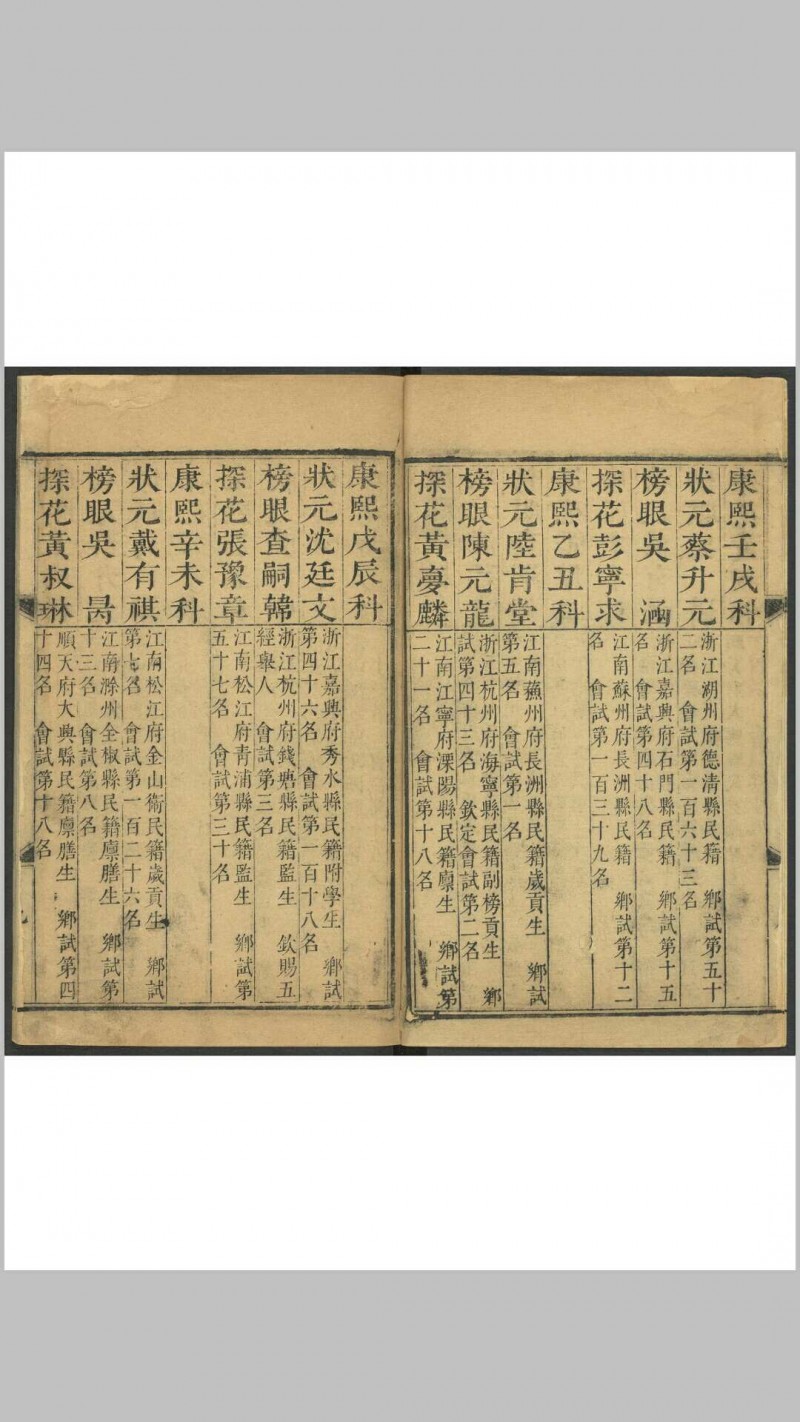 康熙壬戌科
狀元蔡升元 浙江湖州府德清縣民籍 鄉試第五十
二名 會試第一百六十三名
榜眼吳 涵 浙江嘉興府石門縣民籍 鄉試第十五
名 會試第四十八名
探花彭寧求 江南蘇州府長洲縣民籍 鄉試第十二
名 會試第一百三十九名
康熙乙丑科
狀元陸肯堂 江南蘇州府長洲縣民籍歲貢生 鄉試
第五名 會試第一名
榜眼陳元龍 浙江杭州府海寧縣民籍副榜貢生 鄉
試第四十三名 欽定會試第二名
探花黃夢麟 江南江寧府溧陽縣民籍廩生 鄉試第
二十一名 會試第十八名
康熙戊辰科
狀元沈廷文 浙江嘉興府秀水縣民籍附學生 鄉試
第四十六名 會試第一百十八名
榜眼查嗣韓 浙江杭州府錢塘縣民籍監生 欽賜五
經舉人 會試第三名
探花張豫章 江南松江府青浦縣民籍監生 鄉試第
五十七名 會試第三十名
康熙辛未科
狀元戴有祺 江南松江府金山衞民籍歲貢生 鄉試
第七名 會試第一百二十六名
榜眼吳 昺 江南滁州全椒縣民籍廩膳生 鄉試第
十三名 會試第八名
探花黃叔琳 順天府大興縣民籍廩膳生 鄉試第四
十四名 會試第十八名